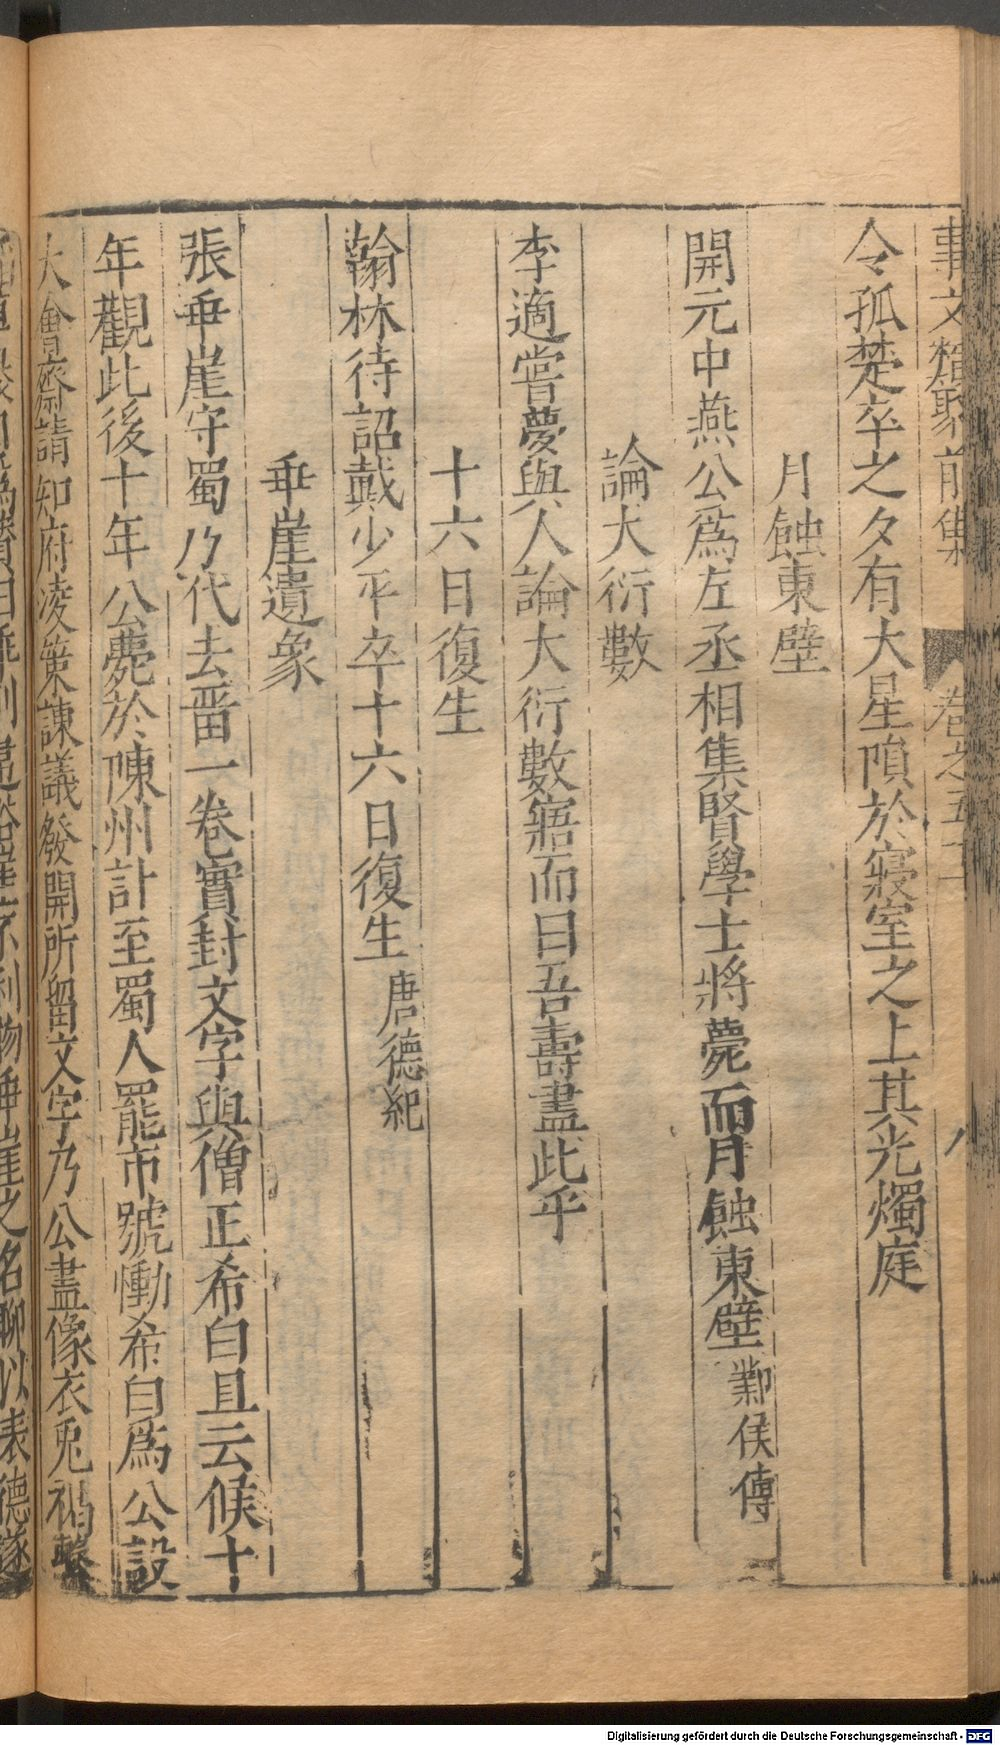 事文類聚前集 卷之五十一 八
令孤楚卒之夕有大星隕於寢室之上其光燭庭
月蝕東壁
開元中燕公爲左丞相集賢學士將薨而月蝕東壁 鄴侯傳
論大衍數
李適嘗夢與人論大衍數寤而曰吾壽盡此乎
十六日復生
翰林待詔戴少平卒十六日復生 唐德紀
垂崖遺象
張垂崖守蜀乃代去畱一卷實封文字與僧正希白且云候十
年觀此後十年公薨於陳州訃至蜀人罷市號慟希白爲公設
大會齋請知府凌策諫議發開所留文字乃公畫像衣兎褐繫
曰乖則違崖不利物乖崖之名聊以表德遂
Digitalisierung gefördert durch die Deutsche Forschungsgemeinschaft - DFG